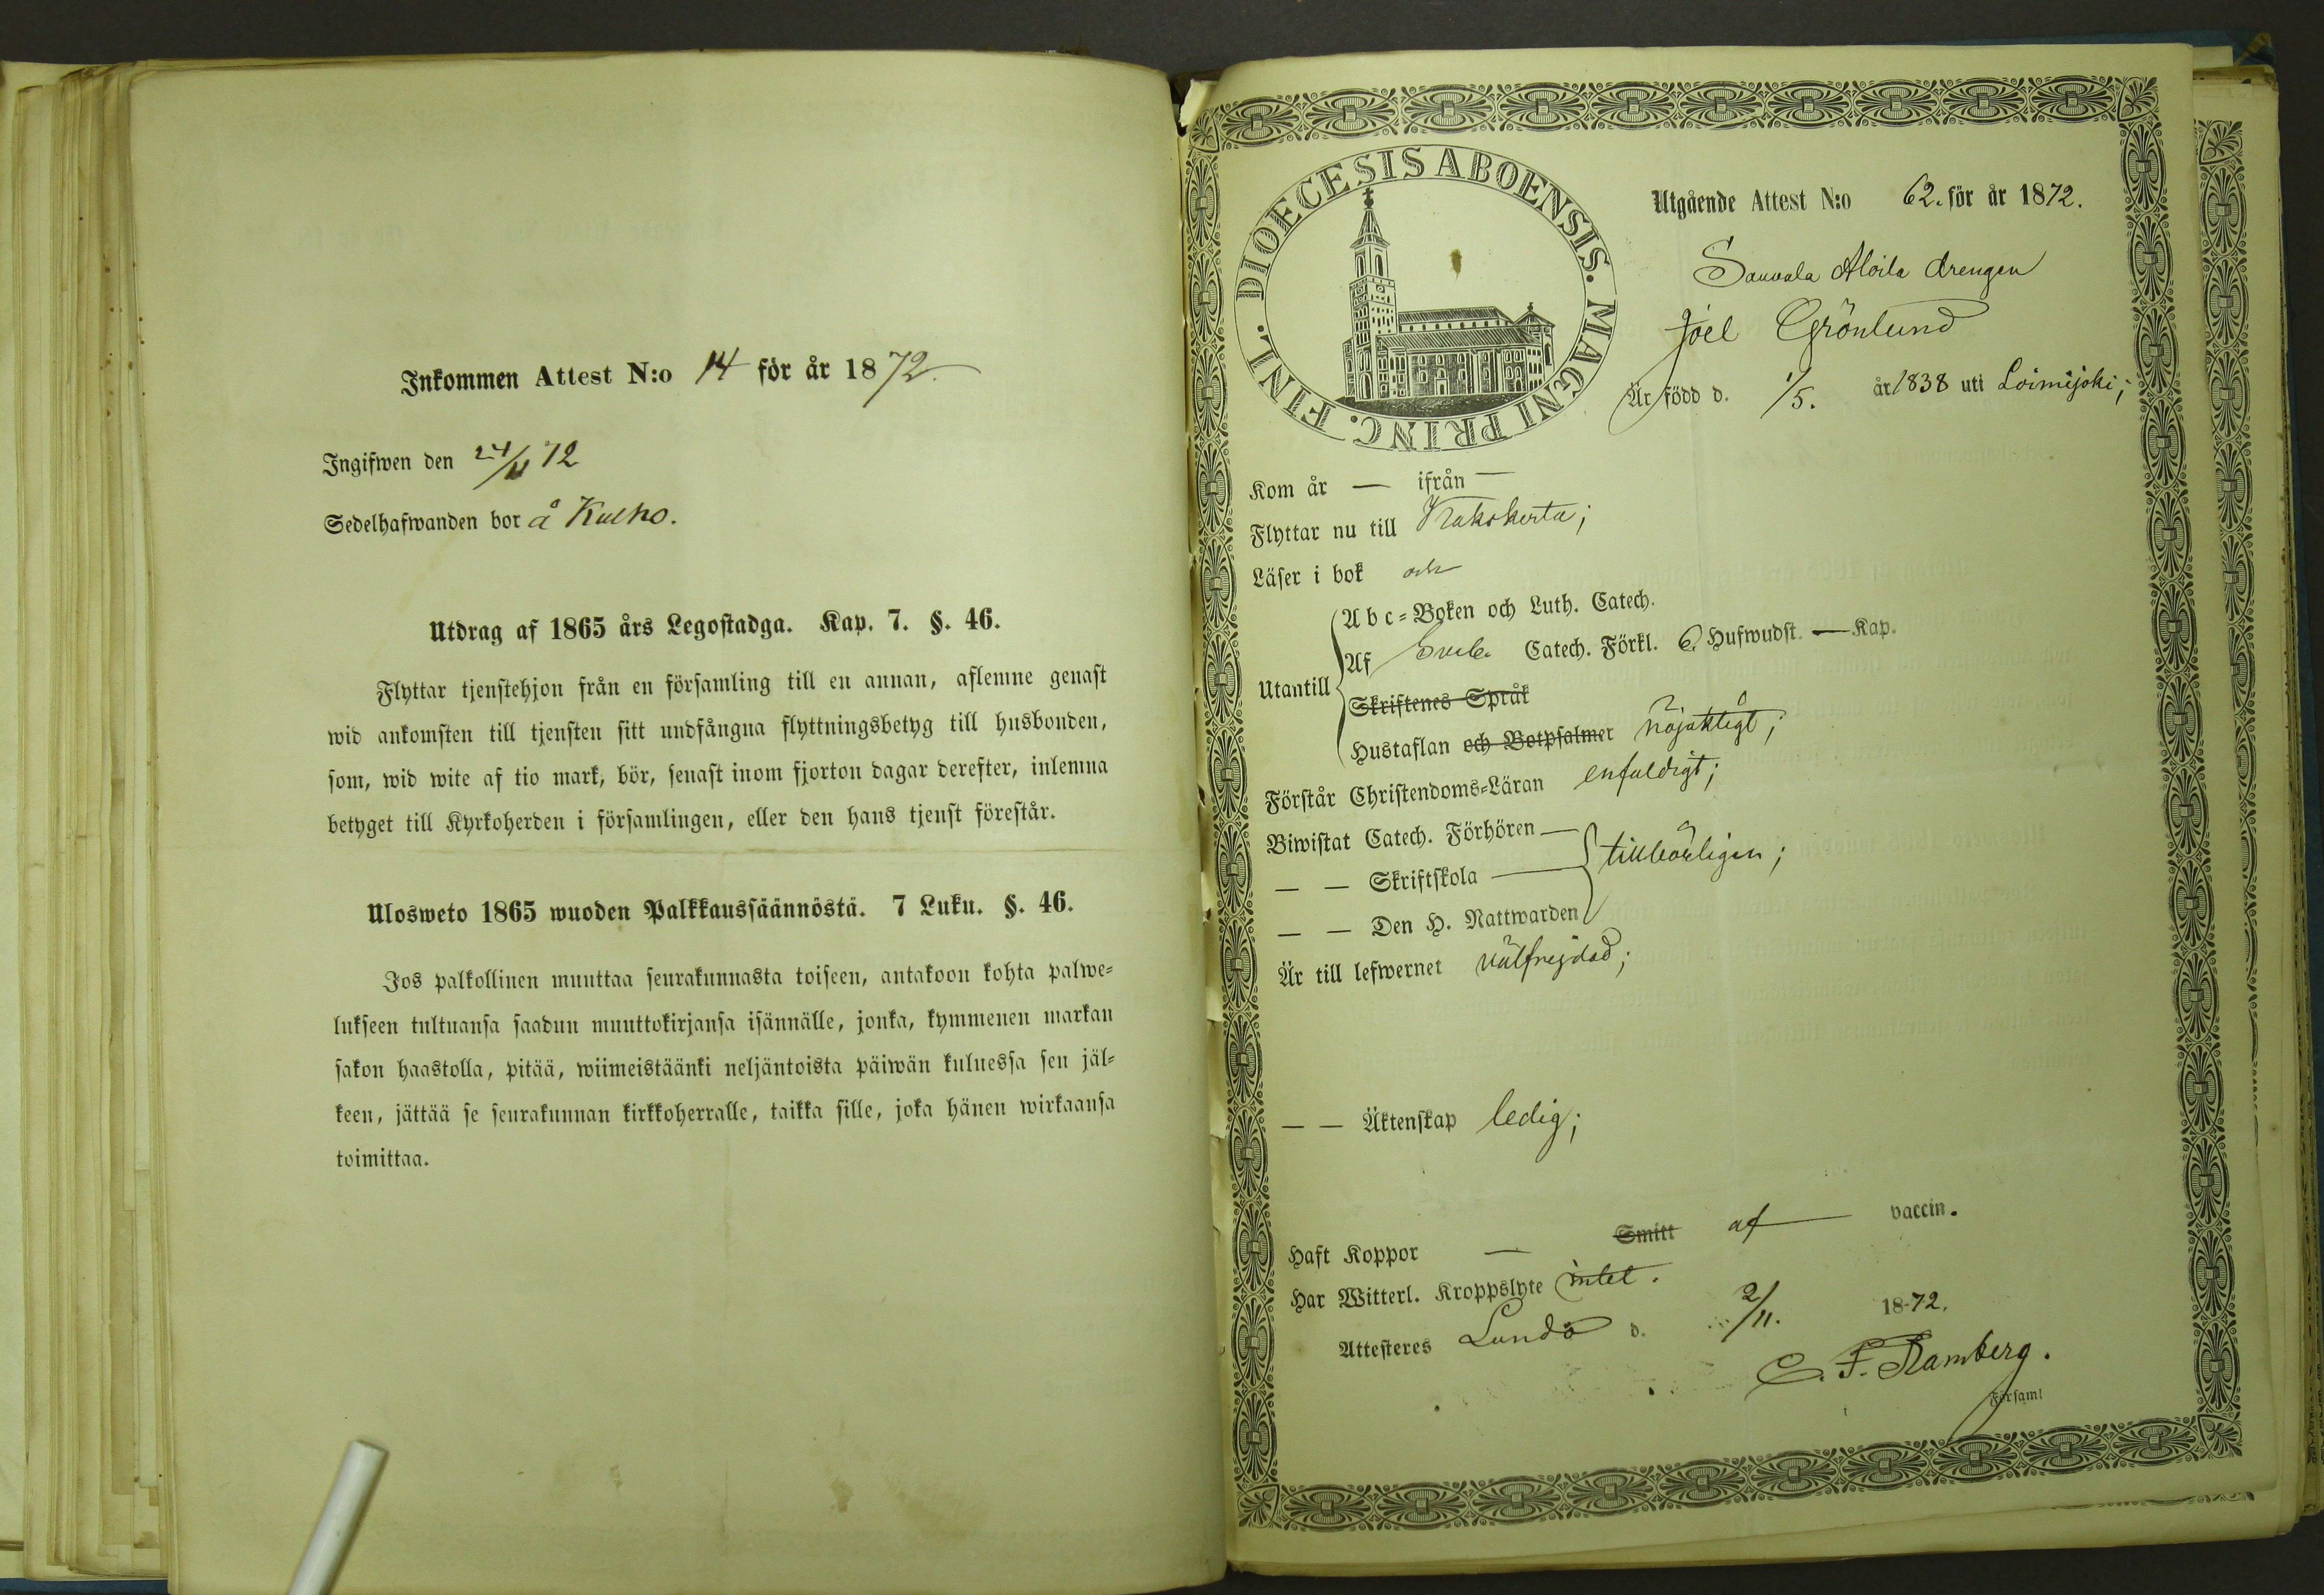 Inkommen Attest N:o 14 för år 1872.
Ingifwen den 24/11 72
Sedelhafwanden bor å Kulho.
Utdrag af 1865 års Legostadga. Kap. 7. §. 46.
Flyttar tjenstehjon från en församling till en annan, aflemne genast
wid ankomsten till tjensten sitt undfångna flyttningsbetyg till husbonden,
som, wid wite af tio mark, bör, senast inom fjorton dagar derefter, inlemna
betyget till Kyrkoherden i församlingen, eller den hans tjenst förestår.
Ulosweto 1865 wuoden Palkkaussäännöstä. 7 Luku. §. 46.
Jos palkollinen muuttaa seurakunnasta toiseen, antakoon kohta palwe=
lukseen tultuansa saadun muuttokirjansa isännälle, jonka, kymmenen markan
sakon haastolla, pitää, wiimeistäänki neljäntoista päiwän kuluessa sen jäl=
keen, jättää se seurakunnan kirkkoherralle, taikka sille, joka hänen wirkaansa
toimittaa.
DIOECESIS ABOENSIS. MAGNI PRINC. FINL.
Utgående Attest N:o 62. för år 1872.
Sauvala Aloila drengen
Joel Grönlund
Är född d. 1/5. år 1838 uti Loimijoki;
Kom år — ifrån —
Flyttar nu till Kakskerta;
Läser i bok och
A b c=Boken och Luth. Catech.
Utantill
Af Sveb. Catech. Förkl. 6. Hufwudst. — Kap.
Skriftenes Språk
Hustaflan och Botpsalmer nöjaktigt;
Förstår Christendoms=Läran enfaldigt;
Biwistat Catech. Förhören —
— — Skriftskola — tillbörligen;
— — Den H. Nattwarden
Är till lefwernet välfrejdad;
— — Äktenskap ledig;
Haft Koppor — Smitt af — vaccin.
Har Witterl. Kroppslyte intet.
Attesteres Lundo d. 2/11. 1872.
C. F. Ramberg.
Församl